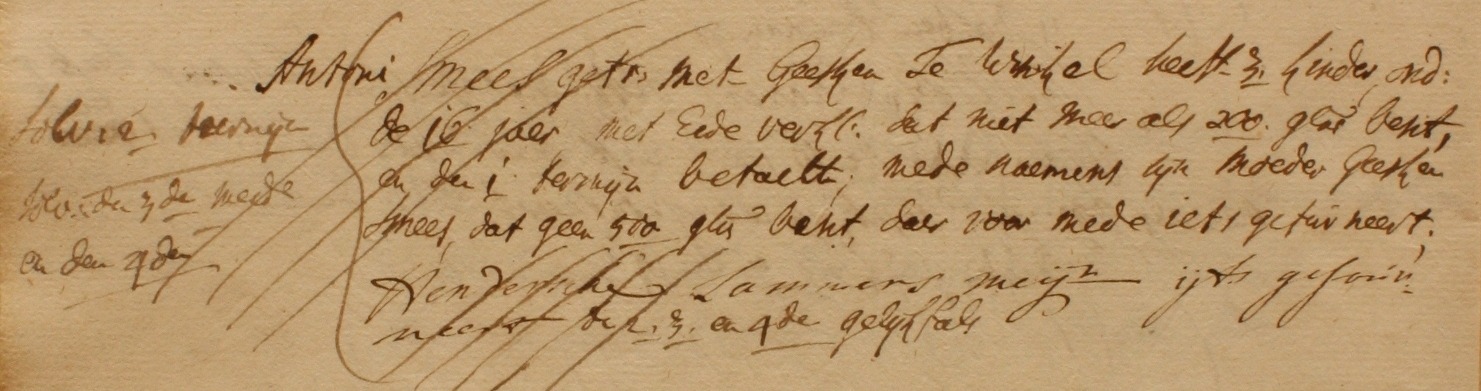 Antoni Smees getr: met Geesken Te Winkel heeft 3. kinder, ond:
de 16 jaer met Eede verkl: dat niet meer als 200. gls besit,
en den 1. termijn betaelt; mede naemens sijn moeder Geesken
Smees, dat geen 500 gls besit, daer voor mede iets gefurneert;
Lammers ijts gefour-
neert de 2. 3. en 4de gelijkfals
solv: 2. termijn
solv: den 3de mede
en den 4den